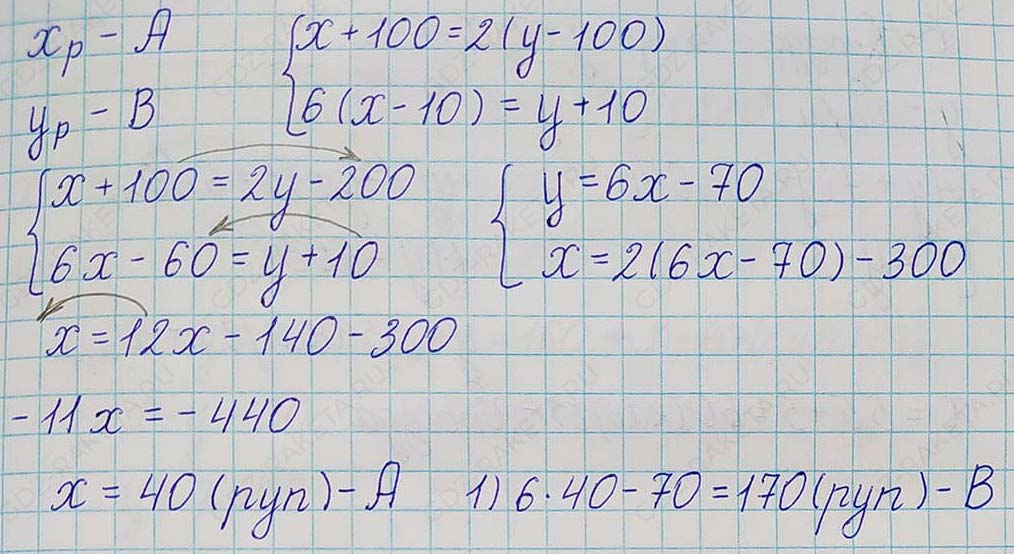 xр - А { x + 100 = 2(y - 100)
yр - В { 6(x - 10) = y + 10
{ x + 100 = 2y - 200 { y = 6x - 70
{ 6x - 60 = y + 10 { x = 2(6x - 70) - 300
x = 12x - 140 - 300
- 11x = - 440
x = 40 (руп) - А 1) 6 · 40 - 70 = 170 (руп) - В